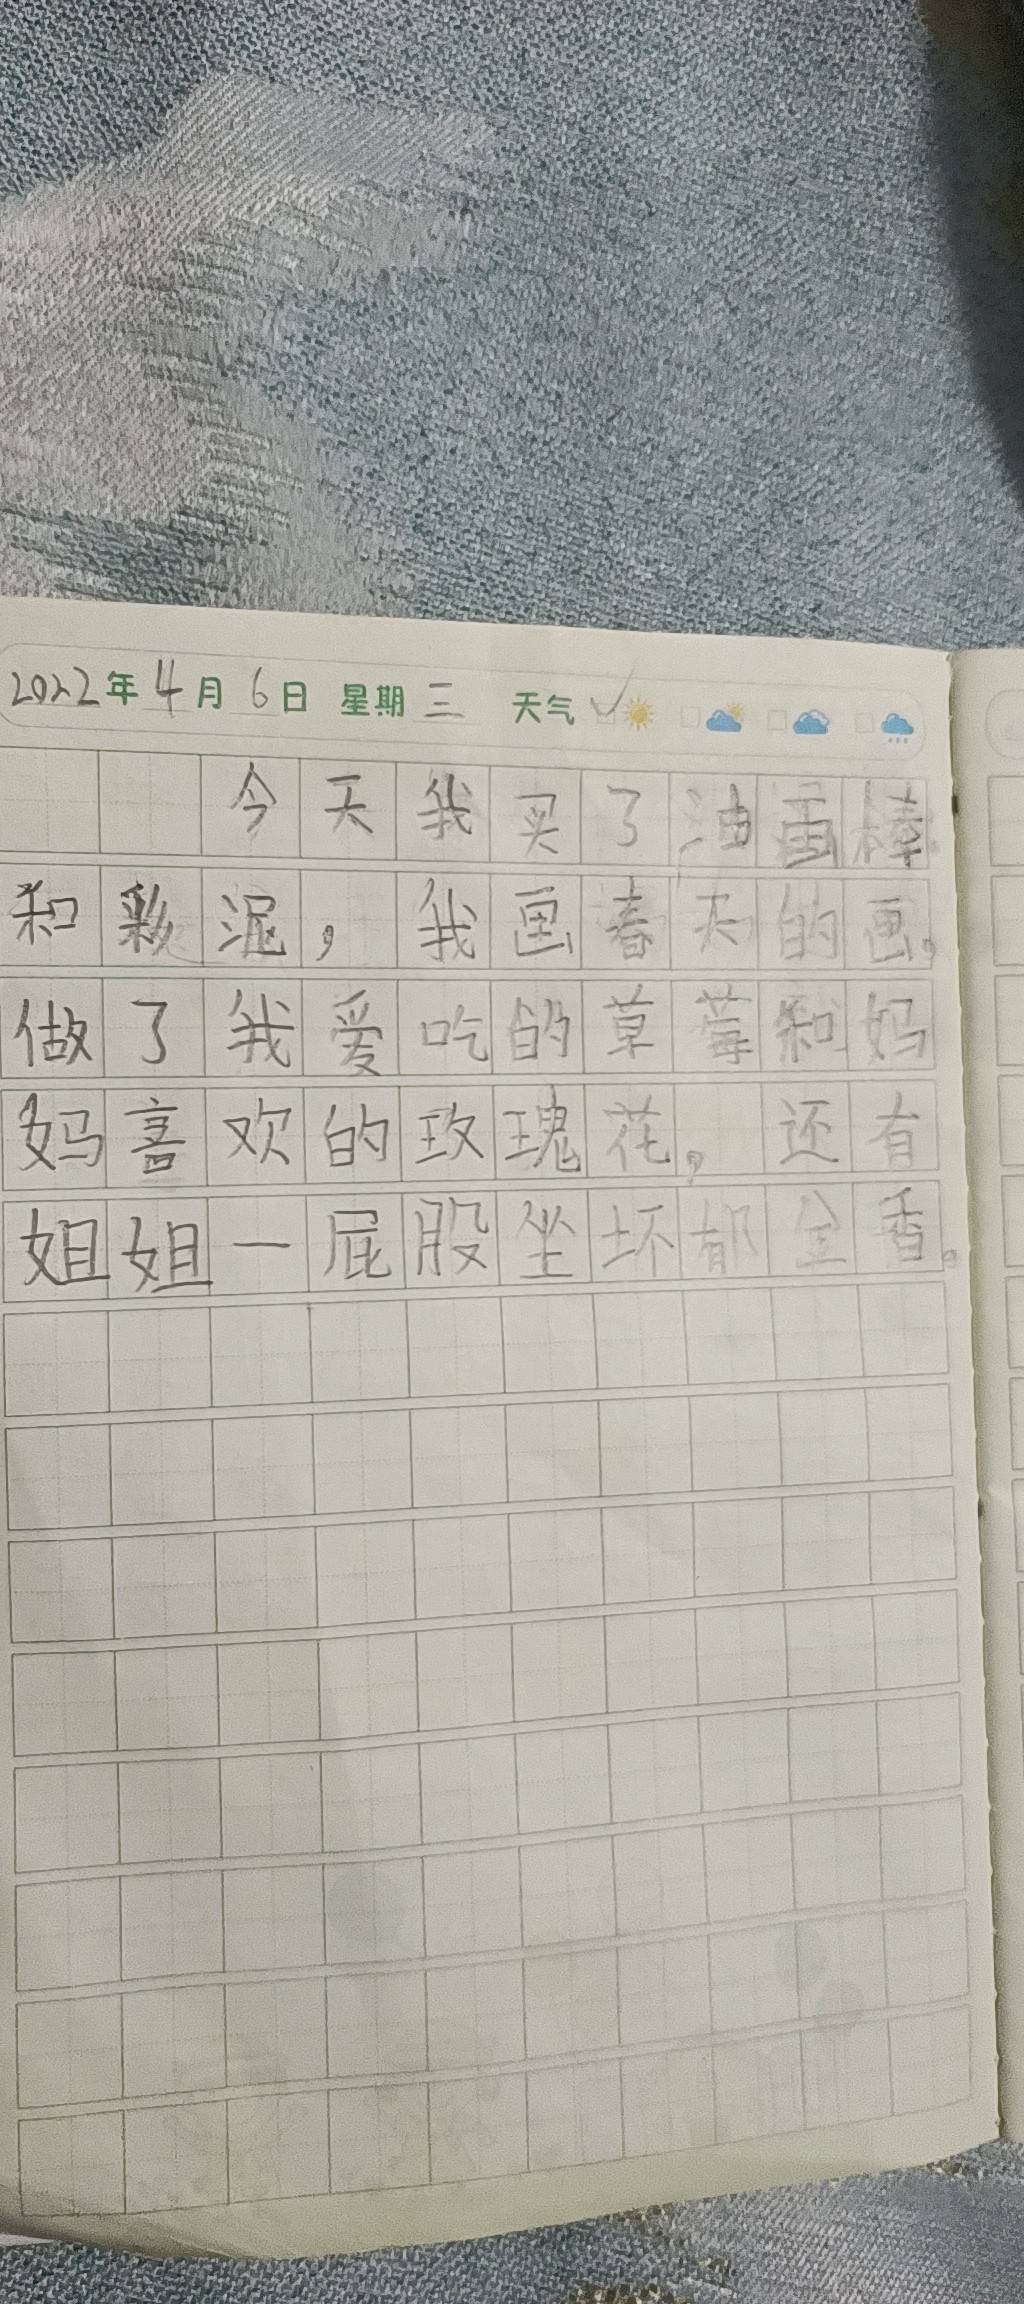 2022年4月6日 星期三 天气
今天我买了油画棒
和彩泥，我画春天的画，
做了我爱吃的草莓和妈
妈喜欢的玫瑰花，还有
姐姐一屁股坐坏郁金香。